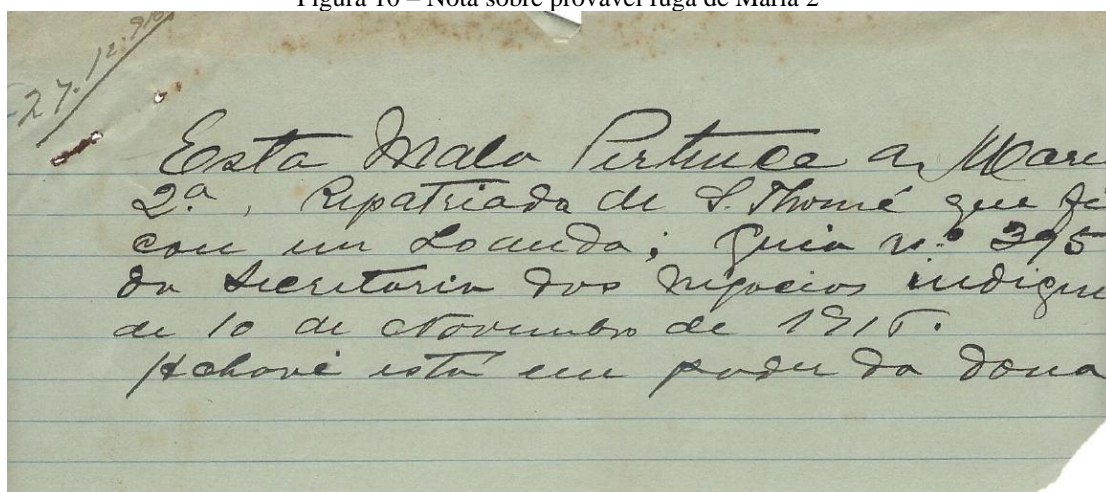 Figura 10 – Nota sobre provável fuga de Maria 2ª
27.12.910
Esta Mala Pertence a Mari
2.ª, Repatriada de S. Thomé que fi
cou em Loanda; Guia n.º 395
da Secretaria dos Negocios indigen
de 10 de Novembro de 1915.
A chave está em poder da dona